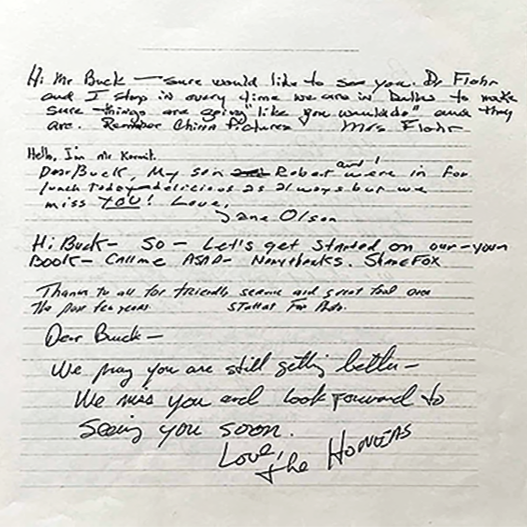 Hi Mr Buck — sure would like to see you. Dr Flohr
and I stop in every time we are in Dallas to make
sure things are going "like you would do" and they
are. Remember China Pictures Mrs Flohr
Hello, I'm Mr Kermit.
Dear Buck, My son Robert and I were in for
lunch today - delicious as always but we
miss YOU! Love,
Jane Olson
Hi Buck - So - Let's get started on our - your
Book - Call me ASAP - Many thanks. Shane Fox
Thanks to all for friendly service and great food over
The past few years.
Dear Buck —
We pray you are still getting better —
We miss you and look forward to
seeing you soon.
Love,
the